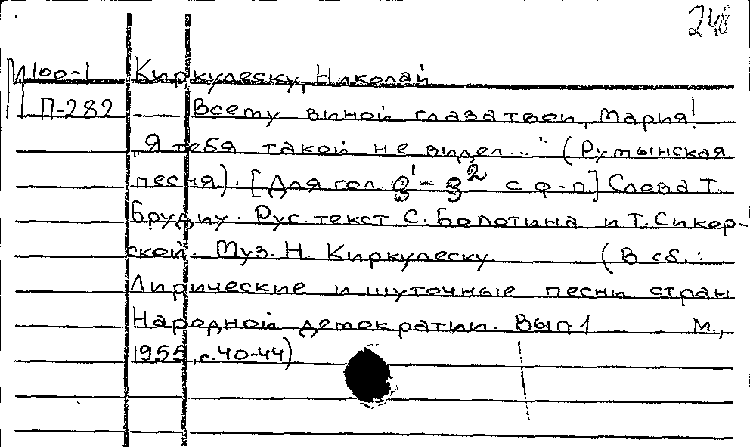 248
М100-1 Киркулеску, Николай
П-282 Всему виной глаза твои, Мария!
"Я тебя такой не видел..." (Румынская
песня). [Для гол. g¹-g² с ф-п] Слова Т.
Брудиу. Рус. текст С. Болотина и Т. Сикор-
ской. Муз. Н. Киркулеску. (В сб.:
Лирические и шуточные песни стран
Народной демократии. Вып 1 М.,
1955, с. 40-44)